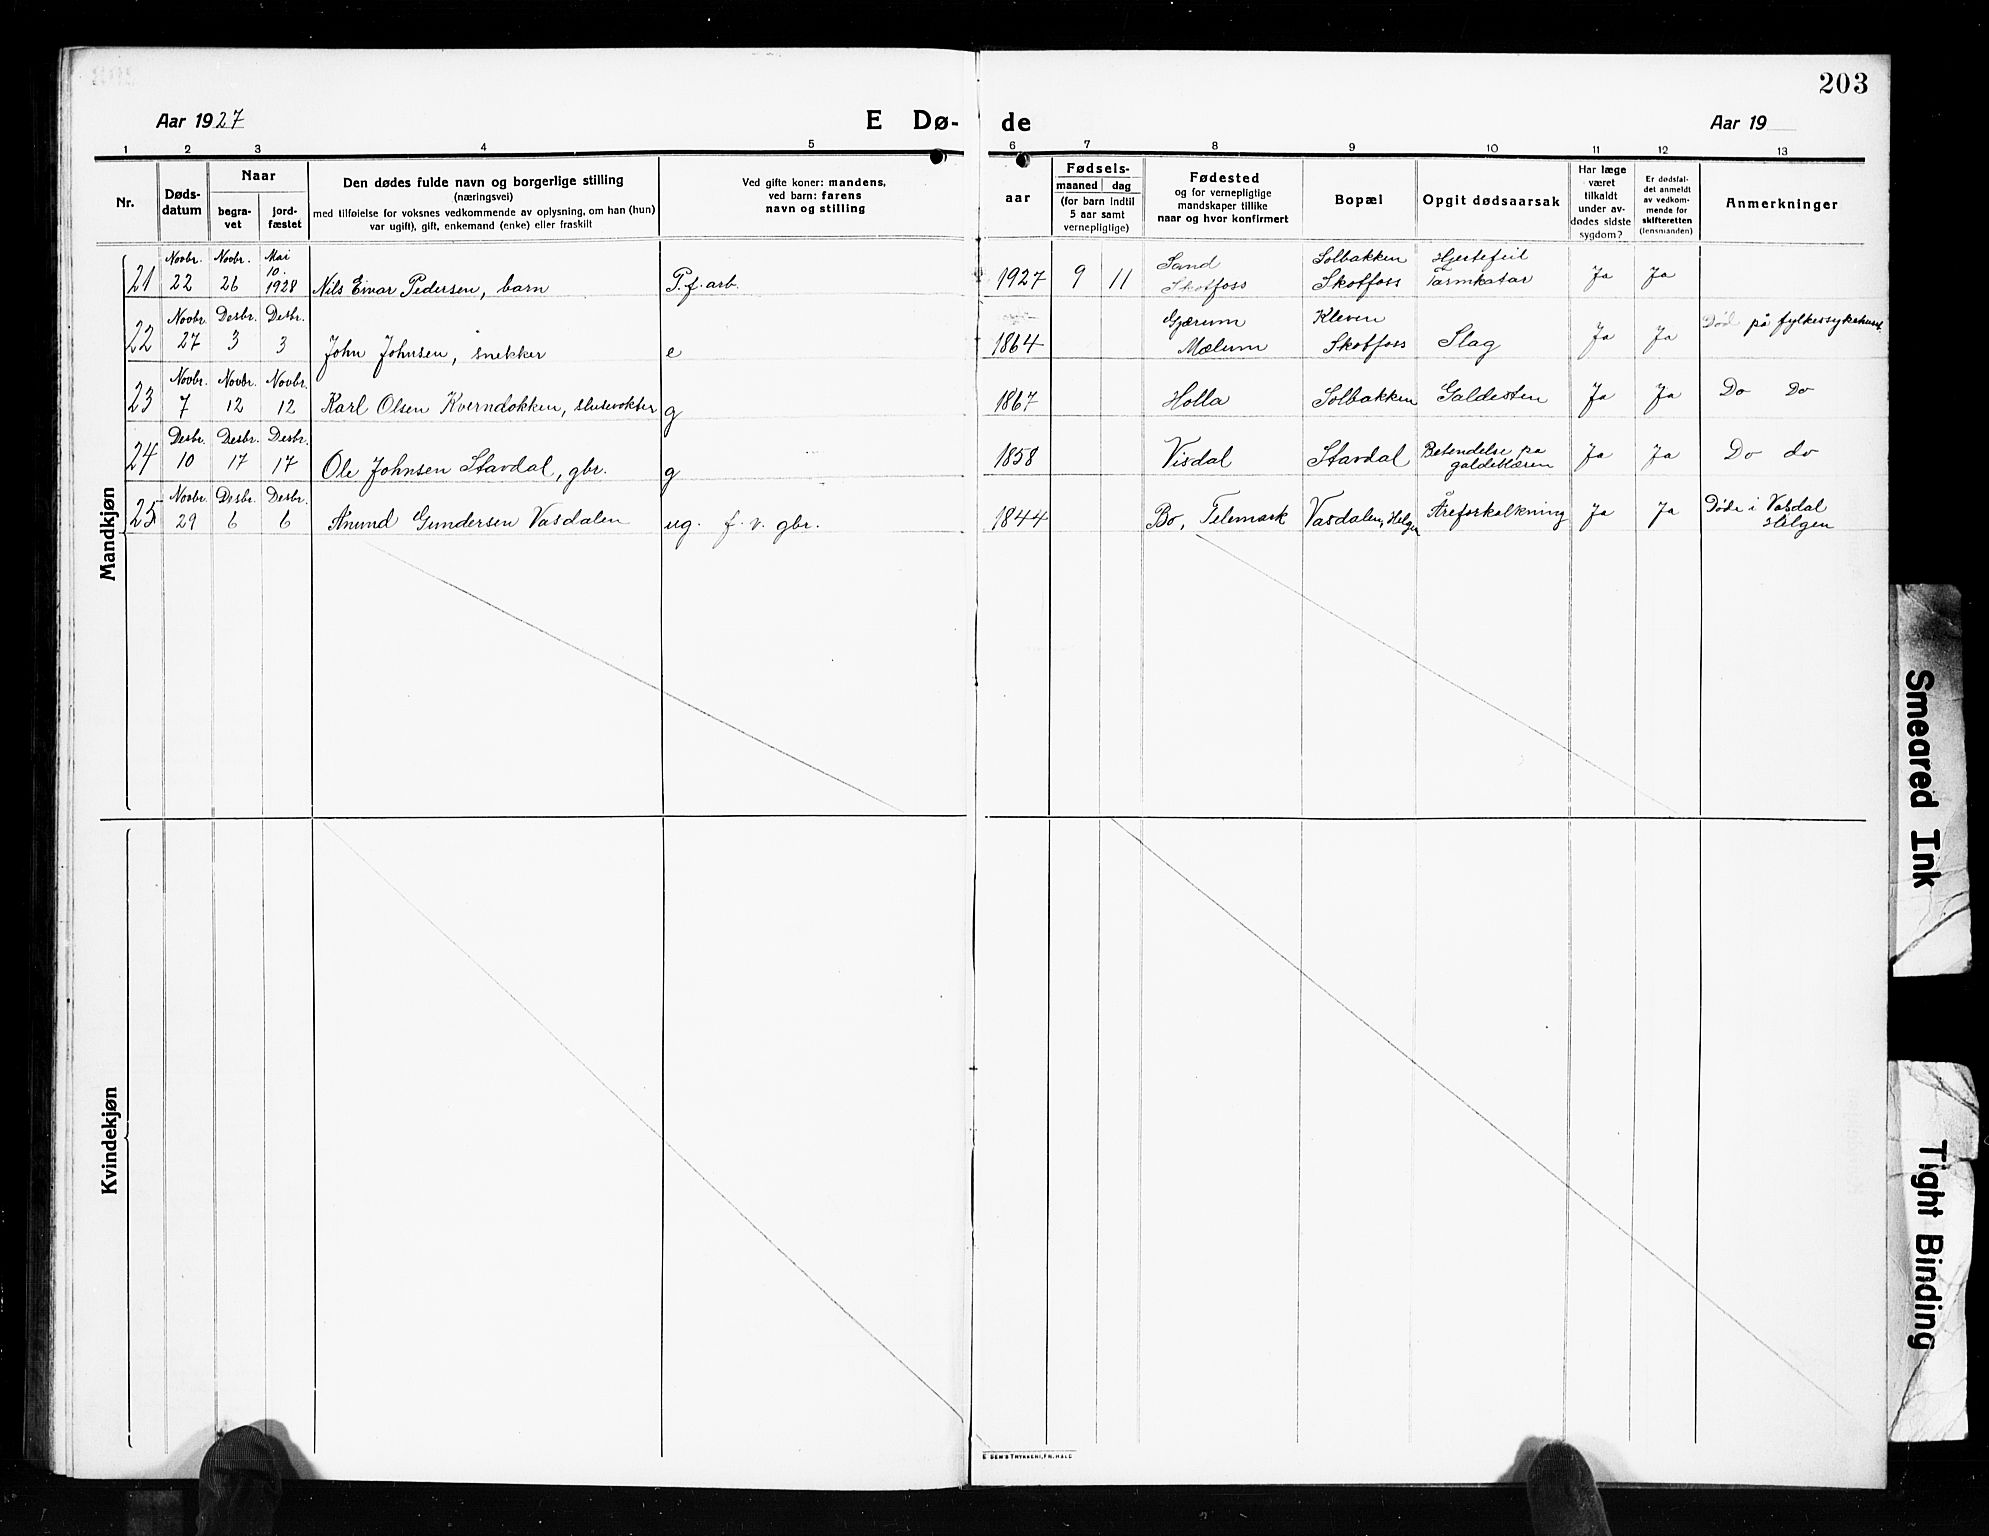 203
Aar 1927
E Dø-
de
Aar 19
1 2 3 4 5 6 7 8 9 10 11 12 13
Nr.
Døds-
datum
Naar
begra-
vet
jord-
fæstet
Den dødes fulde navn og borgerlige stilling
(næringsvei)
med tilføielse for voksnes vedkommende av oplysning, om han (hun)
var ugift), gift, enkemand (enke) eller fraskilt
Ved gifte koner: mandens,
ved barn: farens
navn og stilling
aar
Fødsels-
maaned dag
(for barn indtil
5 aar samt
vernepligtige)
Fødested
og for vernepligtige
mandskaper tillike
naar og hvor konfirmert
Bopæl
Opgit dødsaarsak
Har læge
været
tilkaldt
under av-
dødes sidste
sygdom?
Er dødsfal-
det anmeldt
av vedkom-
mende for
skifteretten
(lensmanden)
Anmerkninger
Mandkjøn
21 Novbr. 22 Novbr. 26 Mai 10. 1928 Nils Einar Pedersen, barn P. f. arb. 1927 9 11 Sand Skotfoss Solbakken Skotfoss Hjertefeil Tarmkatar Ja Ja
22 Novbr. 27 Desbr. 3 Desbr. 3 John Johnsen, snekker e 1864 Gjærum Mælum Kleven Skotfoss Slag Ja Ja Død på fylkessykehuset
23 Novbr. 7 Novbr. 12 Novbr. 12 Karl Olsen Kverndokken, slusevokter g 1867 Holla Solbakken Galdesten Ja Ja Do Do
24 Desbr. 10 Desbr. 17 Desbr. 17 Ole Johnsen Stavdal, gbr. g 1858 Visdal Stavdal Betendelse på galdeblæren Ja Ja Do do
25 Novbr. 29 Desbr. 6 Desbr. 6 Anund Gundersen Vasdalen ug. f. v. gbr. 1844 Bø, Telemark Vasdalen, Helgen Åreforkalkning Ja Ja Døde i Vasdal Helgen
Kvindekjøn
Smeared Ink
Tight Binding